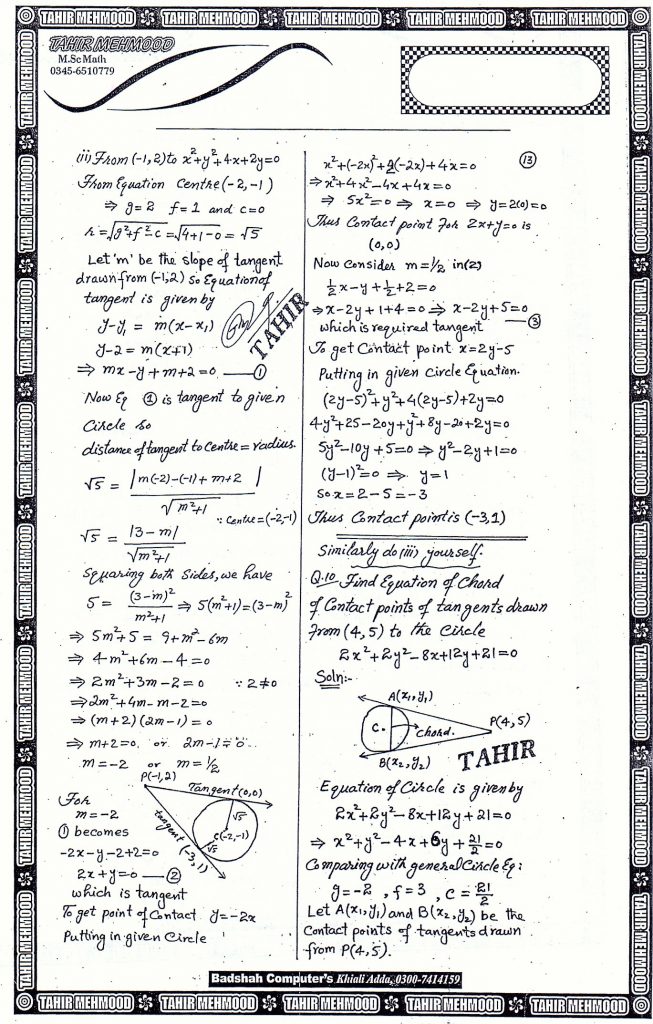 TAHIR MEHMOOD TAHIR MEHMOOD TAHIR MEHMOOD TAHIR MEHMOOD TAHIR MEHMOOD
TAHIR MEHMOOD
M.Sc Math
0345-6510779
(ii) From (-1,2) to x²+y²+4x+2y=0
From Equation Centre (-2,-1)
⇒ g=2 f=1 and c=0
r=√g²+f²-c=√4+1-0=√5
Let 'm' be the slope of tangent
drawn from (-1,2) so Equation of
tangent is given by
y-y₁ = m(x-x₁)
y-2 = m(x+1)
⇒ mx-y+m+2=0 — ①
Now Eq ① is tangent to given
Circle so
distance of tangent to Centre = radius.
√5 = |m(-2)-(-1)+m+2| / √m²+1
∵ Centre=(-2,-1)
√5 = |3-m| / √m²+1
Squaring both Sides, we have
5 = (3-m)² / m²+1 ⇒ 5(m²+1)=(3-m)²
⇒ 5m²+5 = 9+m²-6m
⇒ 4m²+6m-4=0
⇒ 2m²+3m-2=0 ∵ 2≠0
⇒ 2m²+4m-m-2=0
⇒ (m+2)(2m-1)=0
⇒ m+2=0 or 2m-1=0
m=-2 or m=½
P(-1,2)
Tangent (0,0)
√5
C(-2,-1)
√5
tangent (-3,1)
For
m=-2
① becomes
-2x-y-2+2=0
2x+y=0 — ②
which is tangent
To get point of Contact y=-2x
Putting in given Circle
⑬
x²+(-2x)²+2(-2x)+4x=0
⇒ x²+4x²-4x+4x=0
⇒ 5x²=0 ⇒ x=0 ⇒ y=2(0)=0
Thus Contact point for 2x+y=0 is
(0,0)
Now Consider m=½ in(2)
½x-y+½+2=0
⇒ x-2y+1+4=0 ⇒ x-2y+5=0
which is required tangent — ③
To get Contact point x=2y-5
Putting in given circle Equation.
(2y-5)²+y²+4(2y-5)+2y=0
4y²+25-20y+y²+8y-20+2y=0
5y²-10y+5=0 ⇒ y²-2y+1=0
(y-1)²=0 ⇒ y=1
So x=2-5=-3
Thus Contact point is (-3,1)
Similarly do (iii) yourself.
Q.10 Find Equation of Chord
of Contact points of tangents drawn
from (4,5) to the Circle
2x²+2y²-8x+12y+21=0
Soln:-
A(x₁,y₁)
C.
chord.
P(4,5)
B(x₂,y₂)
TAHIR
Equation of Circle is given by
2x²+2y²-8x+12y+21=0
⇒ x²+y²-4x+6y+21/2=0
Comparing with general Circle Eq:
g=-2, f=3, c=21/2
Let A(x₁,y₁) and B(x₂,y₂) be the
Contact points of tangents drawn
from P(4,5).
TAHIR
Badshah Computer's Khiali Adda, 0300-7414159
TAHIR MEHMOOD TAHIR MEHMOOD TAHIR MEHMOOD TAHIR MEHMOOD TAHIR MEHMOOD